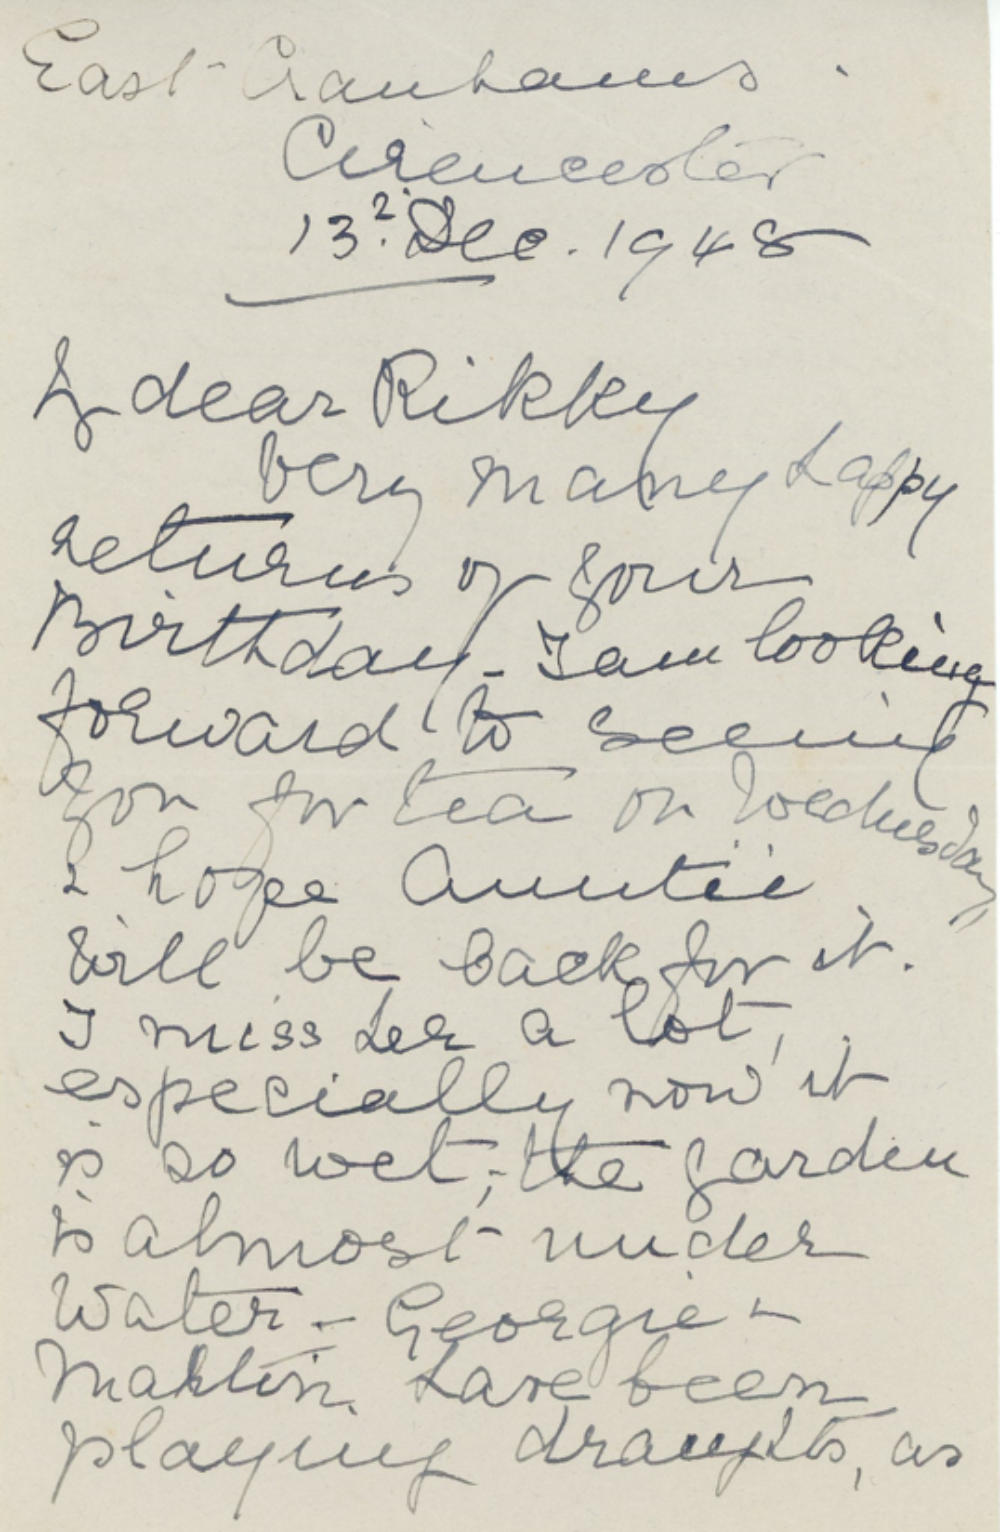 East Cranhams.
Cirencester
13? Dec. 1948
My dear Rikky
Very many happy
returns of your
Birthday - I am looking
forward to seeing
you for tea on Wednesday,
I hope Auntie
will be back for it.
I miss her a lot,
especially now it
is so wet; - the garden
is almost under
water - Georgie &
Martin have been
playing draughts, as